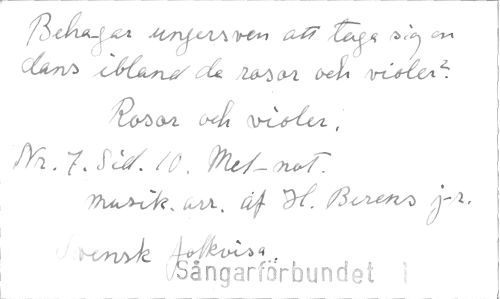 Behagar ungersven att taga sig en
dans ibland de rosor och violer?
Rosor och violer.
Nr. 7. Sid. 10. Met-not.
musik. arr. af H. Berens j-r.
Svensk folkvisa.
Sångarförbundet